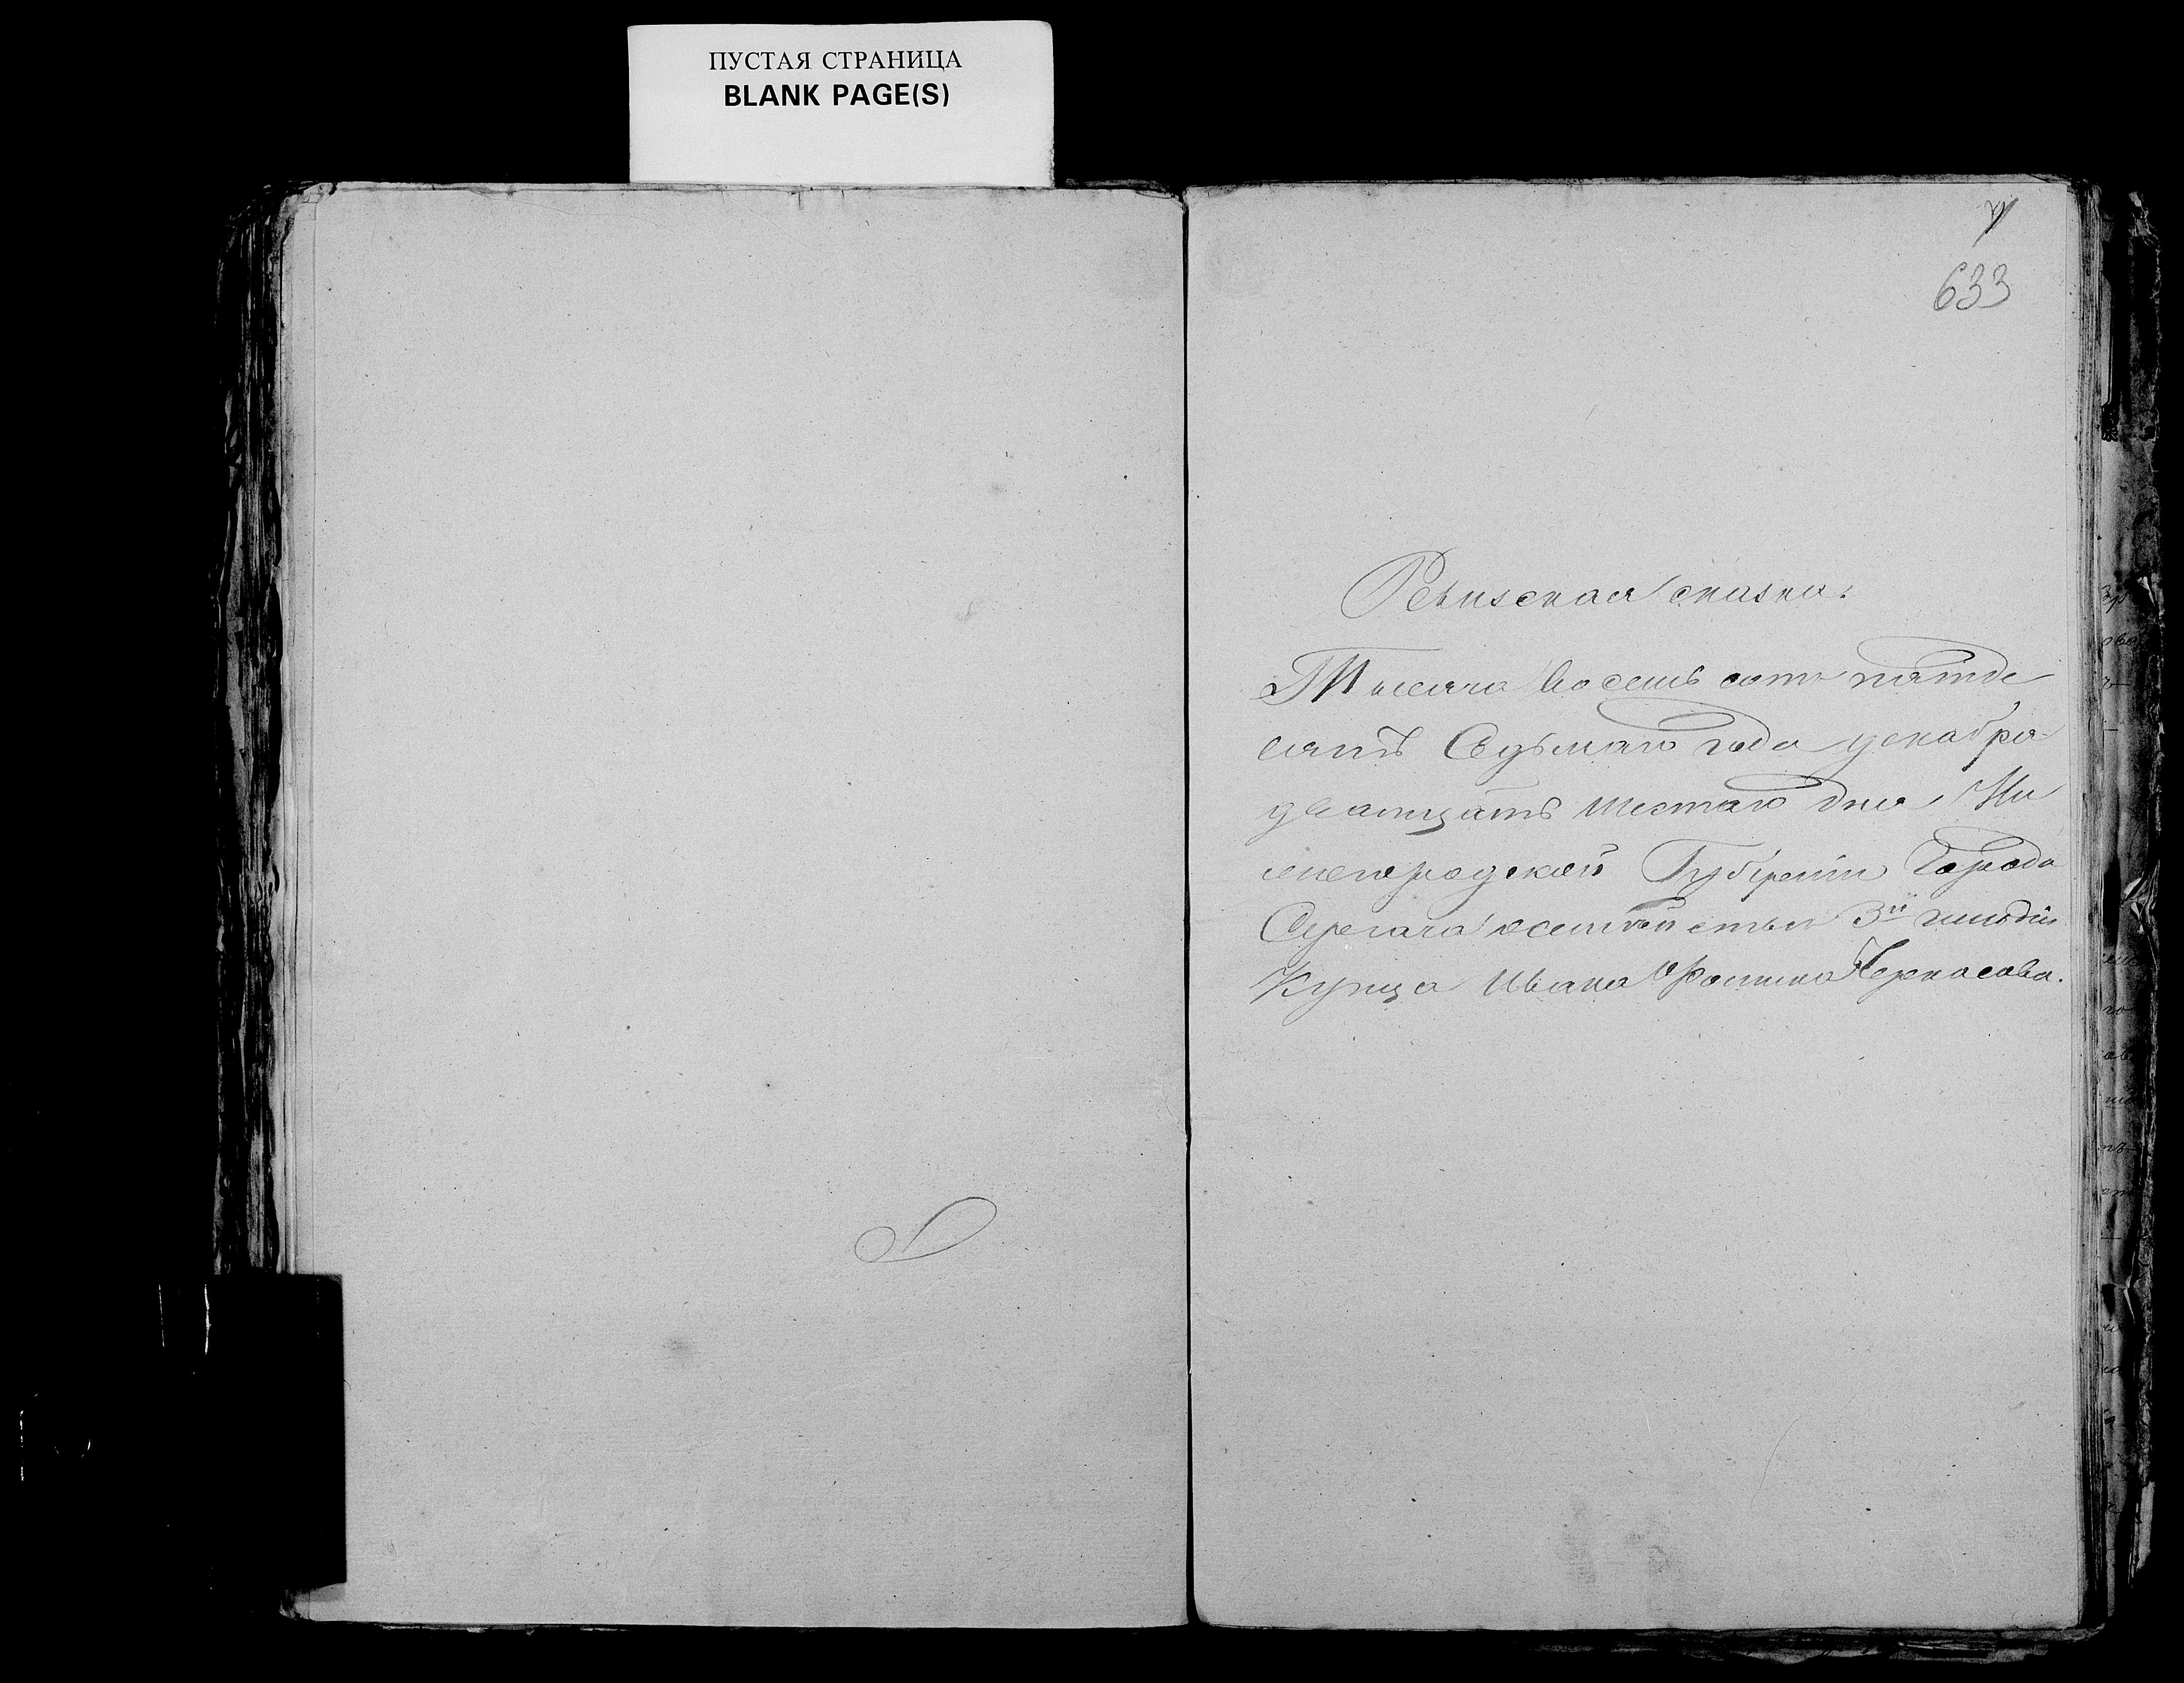 ПУСТАЯ СТРАНИЦА
BLANK PAGE(S)
633
Ревизская сказка.
Тысяча восемь сотъ пятьде
сятъ Седьмаго года декабря
дватцать шестаго дня Ни
жегородской Губерніи Города
Сергача 3й гильдіи
Купца Ивана Фомина Черкасова.